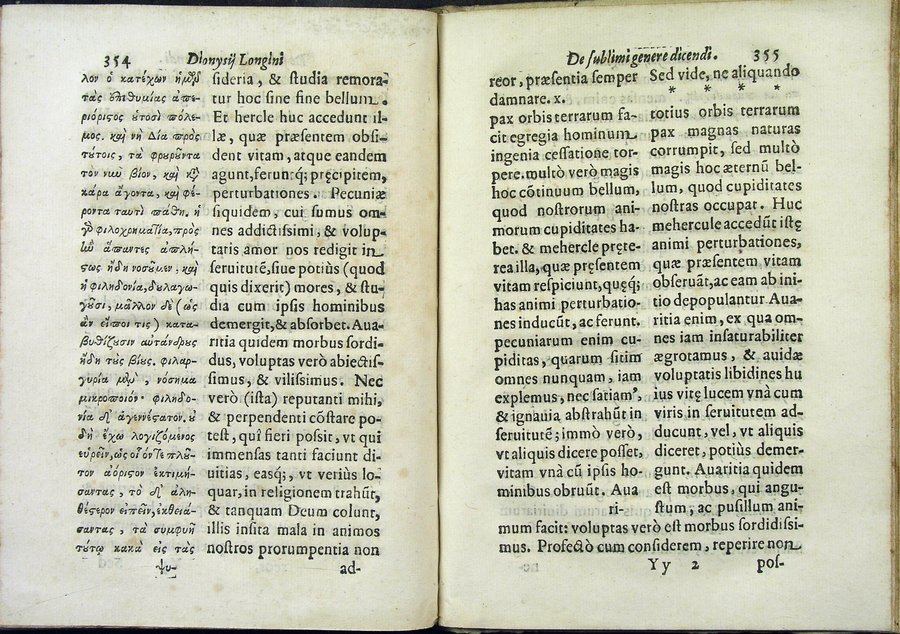 354 Dionysij Longini
λον ὁ κατέχων ἡμῶν
τὰς ἐπιθυμίας ἀπε-
ριόριςος οὑτοσὶ πόλε-
μος. καὶ νὴ Δία πρὸς
τούτοις, τὰ φρουροῦντα
τὸν νῦν βίον, καὶ κατὰ
κάρα ἄγοντα, καὶ φέ-
ροντα ταυτὶ πάθη. ἡ
γὰρ φιλοχρηματία, πρὸς
ἣν ἅπαντες ἀπλή-
ςως ἤδη νοσοῦμεν, καὶ
ἡ φιληδονία, δουλαγω-
γοῦσι, μᾶλλον δὲ (ὡς
ἂν εἴποι τις) κατα-
βυθίζουσιν αὐτάνδρους
ἤδη τοὺς βίους. φιλαρ-
γυρία μὲν, νόσημα
μικροποιόν· φιληδο-
νία δ' ἀγεννέςατον. οὐ
δὴ ἔχω λογιζόμενος
εὑρεῖν, ὡς οἷόν τε πλοῦ-
τον ἀόριςον ἐκτιμή-
σαντας, τὸ δ' ἀλη-
θέςερον εἰπεῖν, ἐκθειά-
σαντας, τὰ συμφυῆ
τούτῳ κακὰ εἰς τὰς
ψυ-
sideria, & studia remora-
tur hoc sine fine bellum.
Et hercle huc accedunt il-
læ, quæ præsentem obsi-
dent vitam, atque eandem
agunt, feruntq; pręcipitem,
perturbationes. Pecuniæ
siquidem, cui sumus om-
nes addictissimi, & volup-
tatis amor nos redigit in
seruitutẽ, siue potiùs (quod
quis dixerit) mores, & stu-
dia cum ipsis hominibus
demergit, & absorbet. Aua-
ritia quidem morbus sordi-
dus, voluptas verò abiectis-
simus, & vilissimus. Nec
verò (ista) reputanti mihi,
& perpendenti cõstare po-
test, quî fieri possit, vt qui
immensas tanti faciunt di-
uitias, easq;, vt veriùs lo-
quar, in religionem trahũt,
& tanquam Deum colunt,
illis insita mala in animos
nostros prorumpentia non
ad-
De sublimi genere dicendi. 355
reor, præsentia semper
damnare. x.
pax orbis terrarum fa-
cit egregia hominum
ingenia cessatione tor-
pere. multò verò magis
hoc cõtinuum bellum,
quod nostrorum ani-
morum cupiditates ha-
bet. & mehercle pręte-
rea illa, quæ pręsentem
vitam respiciunt, quęq;
has animi perturbatio-
nes inducũt, ac ferunt.
pecuniarum enim cu-
piditas, quarum sitim
omnes nunquam, iam
explemus, nec satiamꝰ,
& ignauia abstrahũt in
seruitutẽ; immò verò,
vt aliquis dicere posset,
vitam vnà cũ ipsis ho-
minibus obruũt. Aua
ri-
Sed vide, ne aliquando
* * * *
totius orbis terrarum
pax magnas naturas
corrumpit, sed multò
magis hoc æternũ bel-
lum, quod cupiditates
nostras occupat. Huc
mehercule accedũt istę
animi perturbationes,
quæ præsentem vitam
obseruãt, ac eam ab ini-
tio depopulantur. Aua-
ritia enim, ex qua om-
nes iam insaturabiliter
ægrotamus, & auidæ
voluptatis libidines hu
ius vitę lucem vnà cum
viris in seruitutem ad-
ducunt, vel, vt aliquis
diceret, potiùs demer-
gunt. Auaritia quidem
est morbus, qui angu-
stum, ac pusillum ani-
mum facit: voluptas verò est morbus sordidissi-
mus. Profectò cum considerem, reperire non
Yy 2 pos-